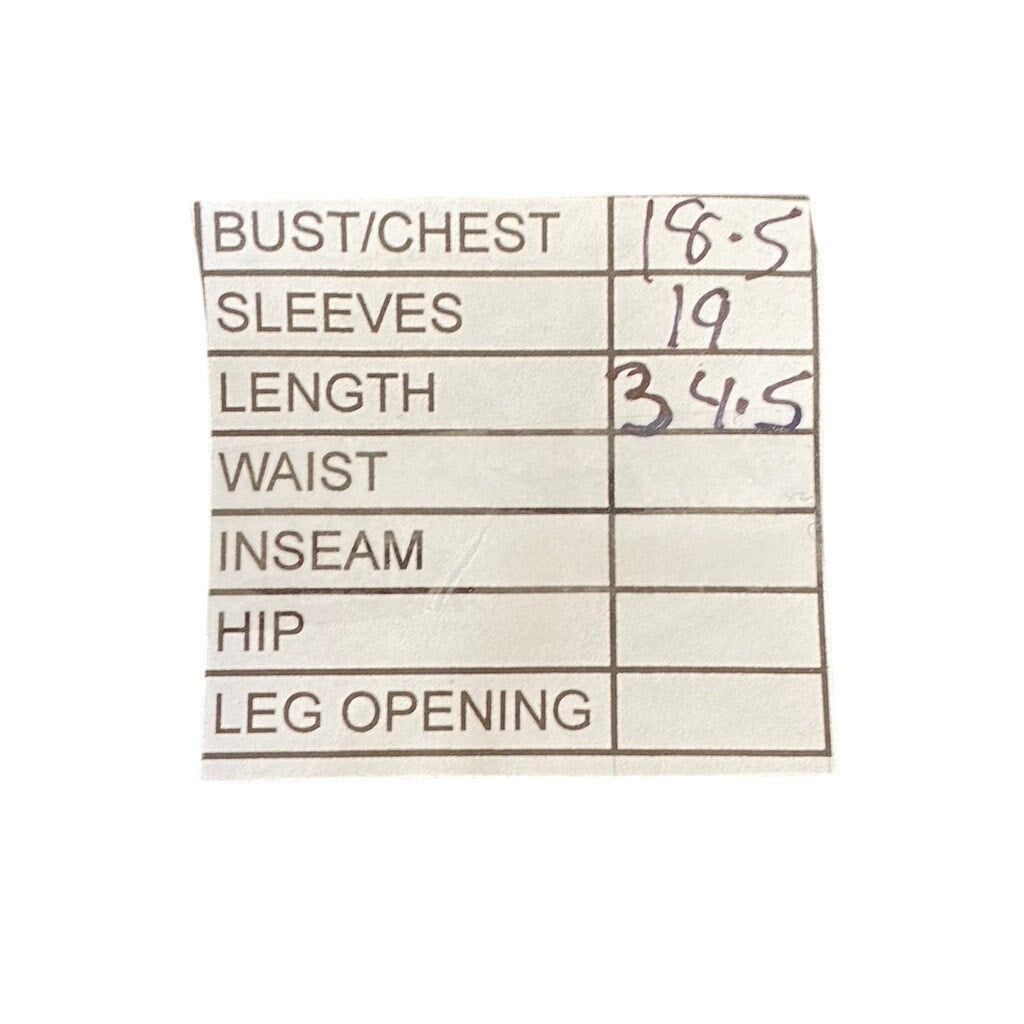 BUST/CHEST 18.5
SLEEVES 19
LENGTH 34.5
WAIST
INSEAM
HIP
LEG OPENING